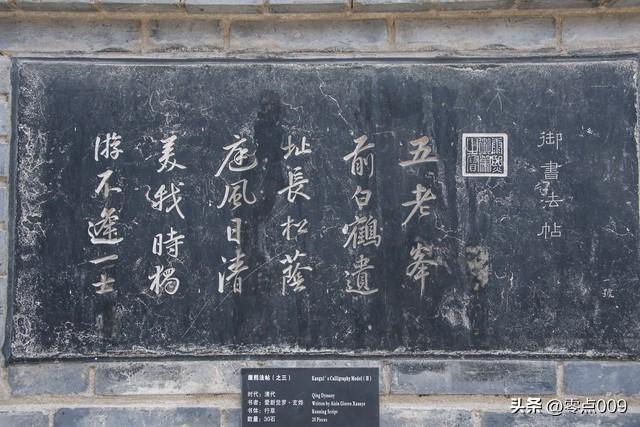 御書法帖
一號
康熙御筆之寶
五老峯
前白鶴遺
址長松蔭
庭風日清
美我時獨
游不逢一士
康熙法帖（之三） Kangxi's Calligraphy Model ( II )
时代：清代 Qing Dynasty
书者：爱新觉罗·玄烨 Written by Aisin Gioro Xuanye
书体：行草 Running Script
数量：30石 28 Pieces
头条 @零点009